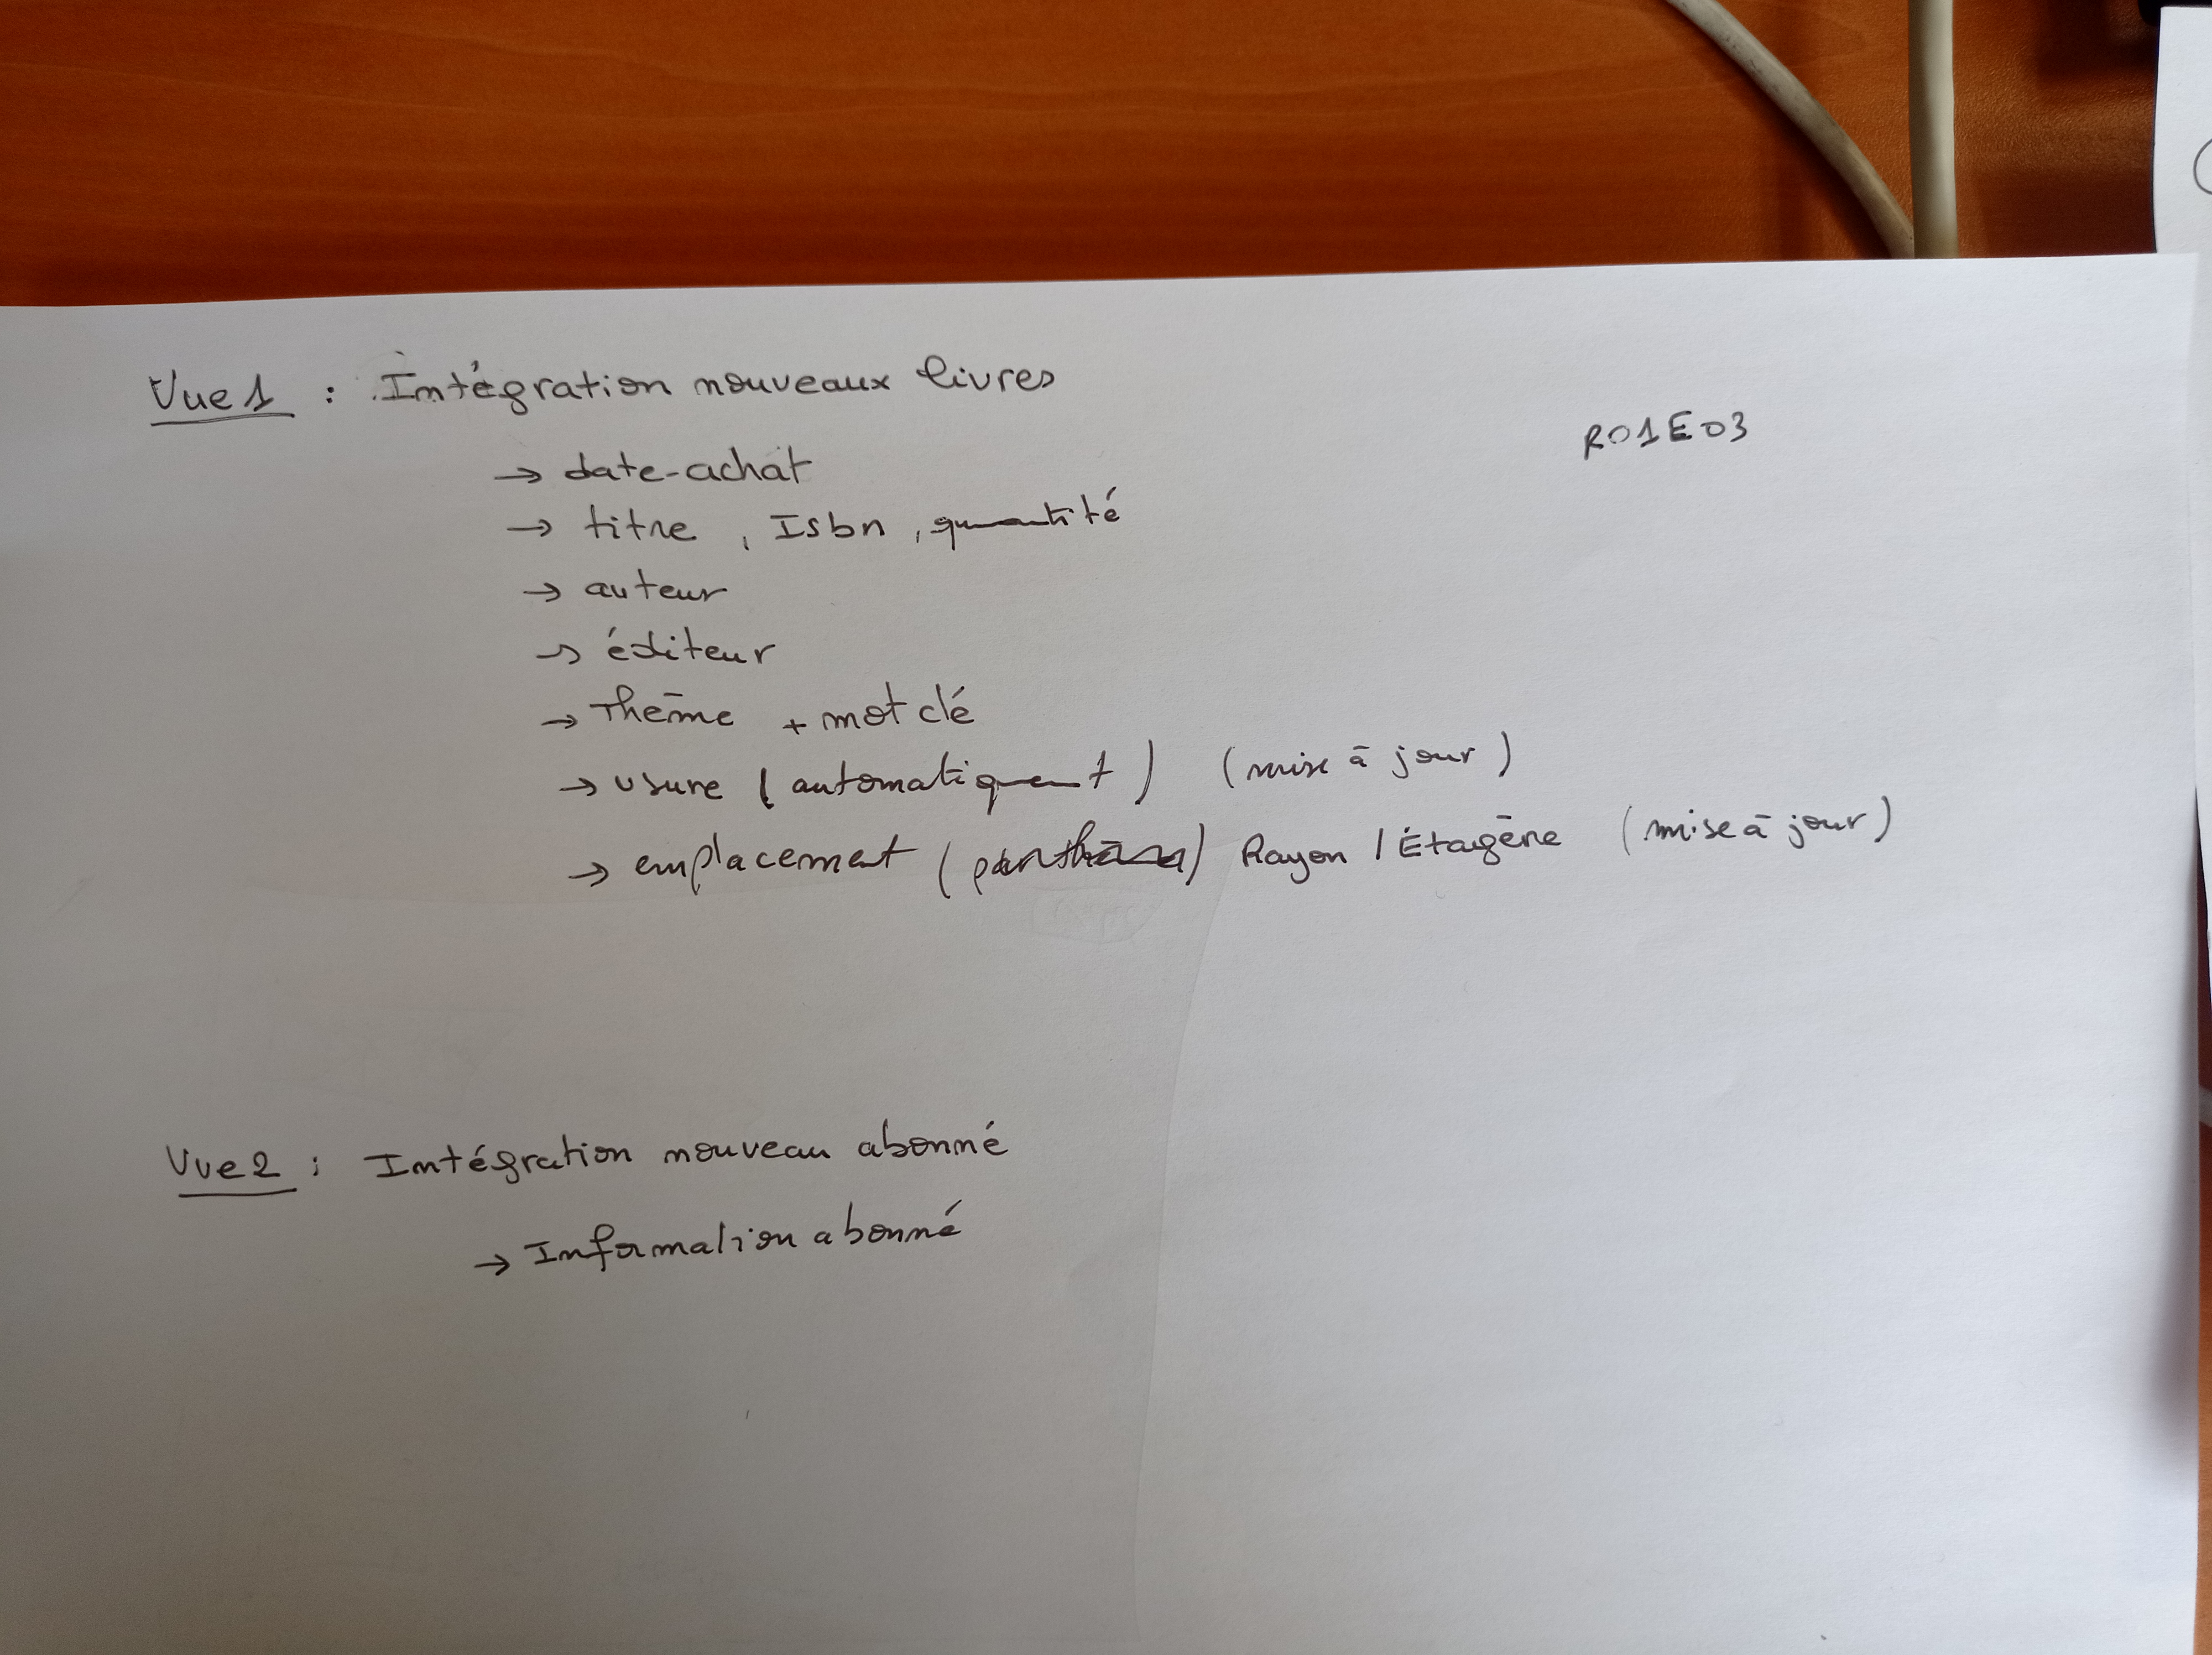 Vue 1 : Intégration nouveaux livres
R01E03
→ date-achat
→ titre , Isbn , quantité
→ auteur
→ éditeur
→ Thème + mot clé
→ usure ( automatiquement ) (mise à jour )
→ emplacement ( ) Rayon / Étagère (mise à jour)
Vue 2 : Intégration nouveau abonné
→ Information abonné